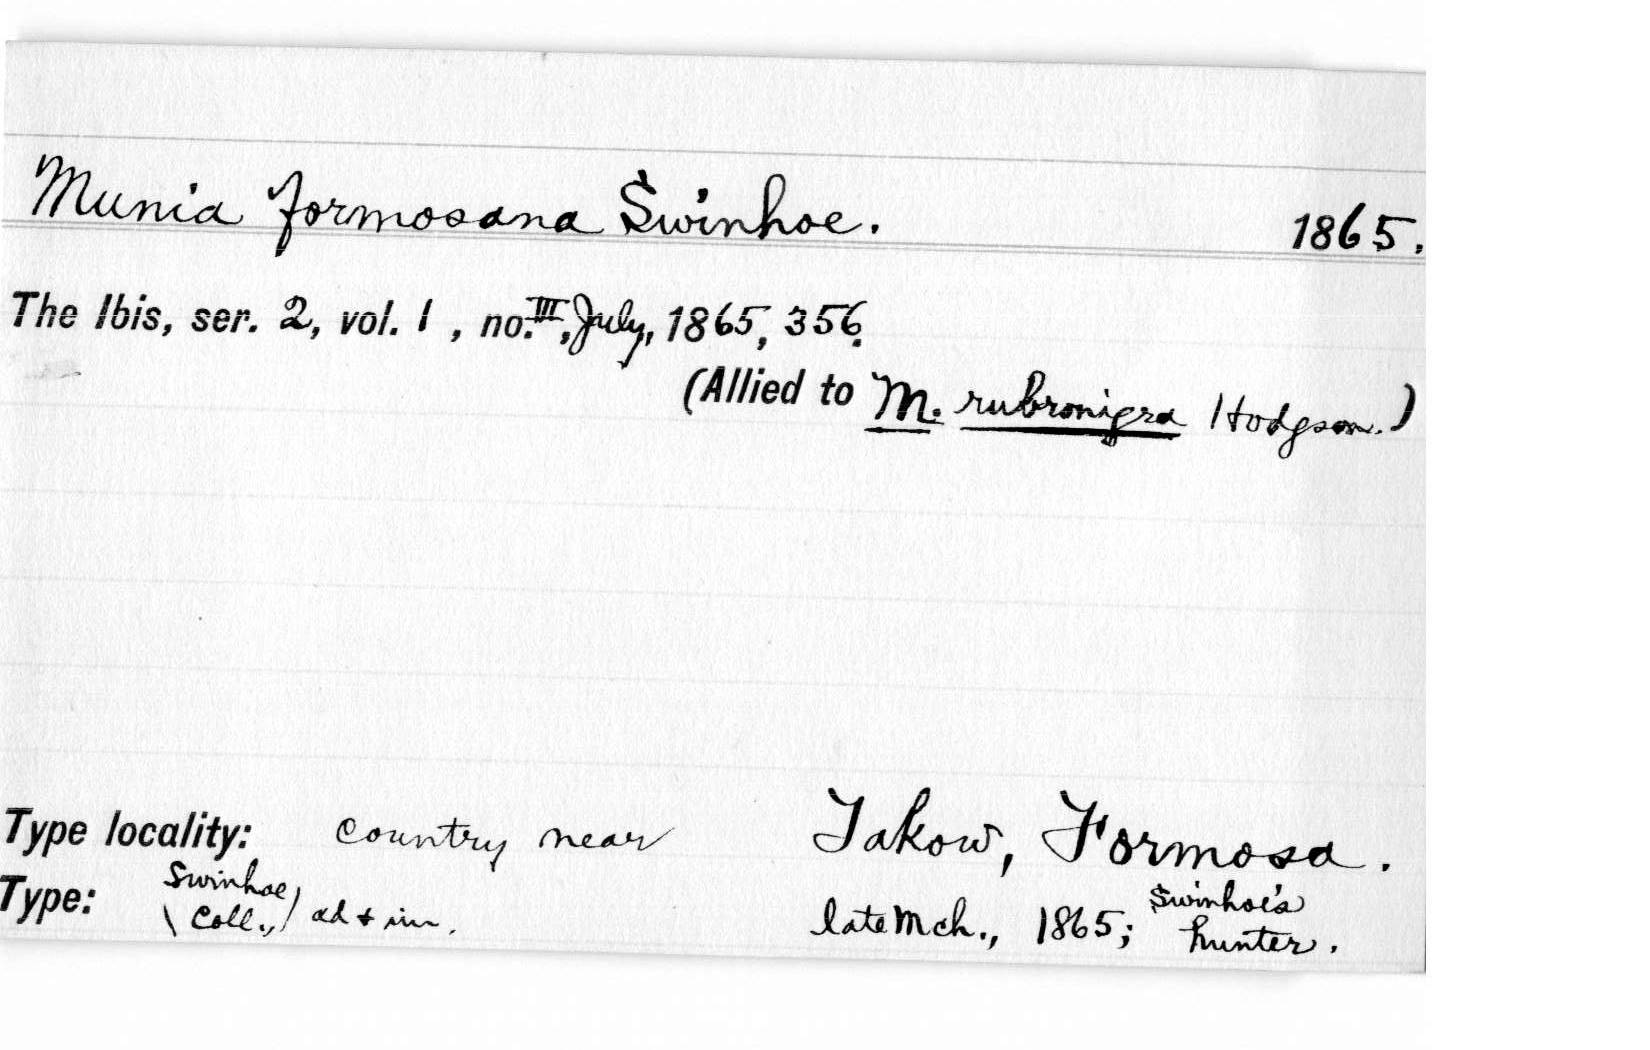 Munia formosana Swinhoe. 1865.
The Ibis, ser. 2, vol. 1, no. III, July, 1865, 356.
(Allied to M. rubronigra Hodgson.)
Type locality: country near Takow, Formosa.
Type: (Swinhoe Coll.,) ad & im. late Mch., 1865; Swinhoe's hunter.